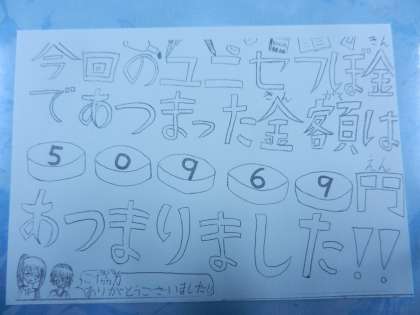 今回のユニセフぼ金
きん
であつまった金額は
きんがく
50969円
えん
あつまりました!!
ご協力
ありがとうございました!